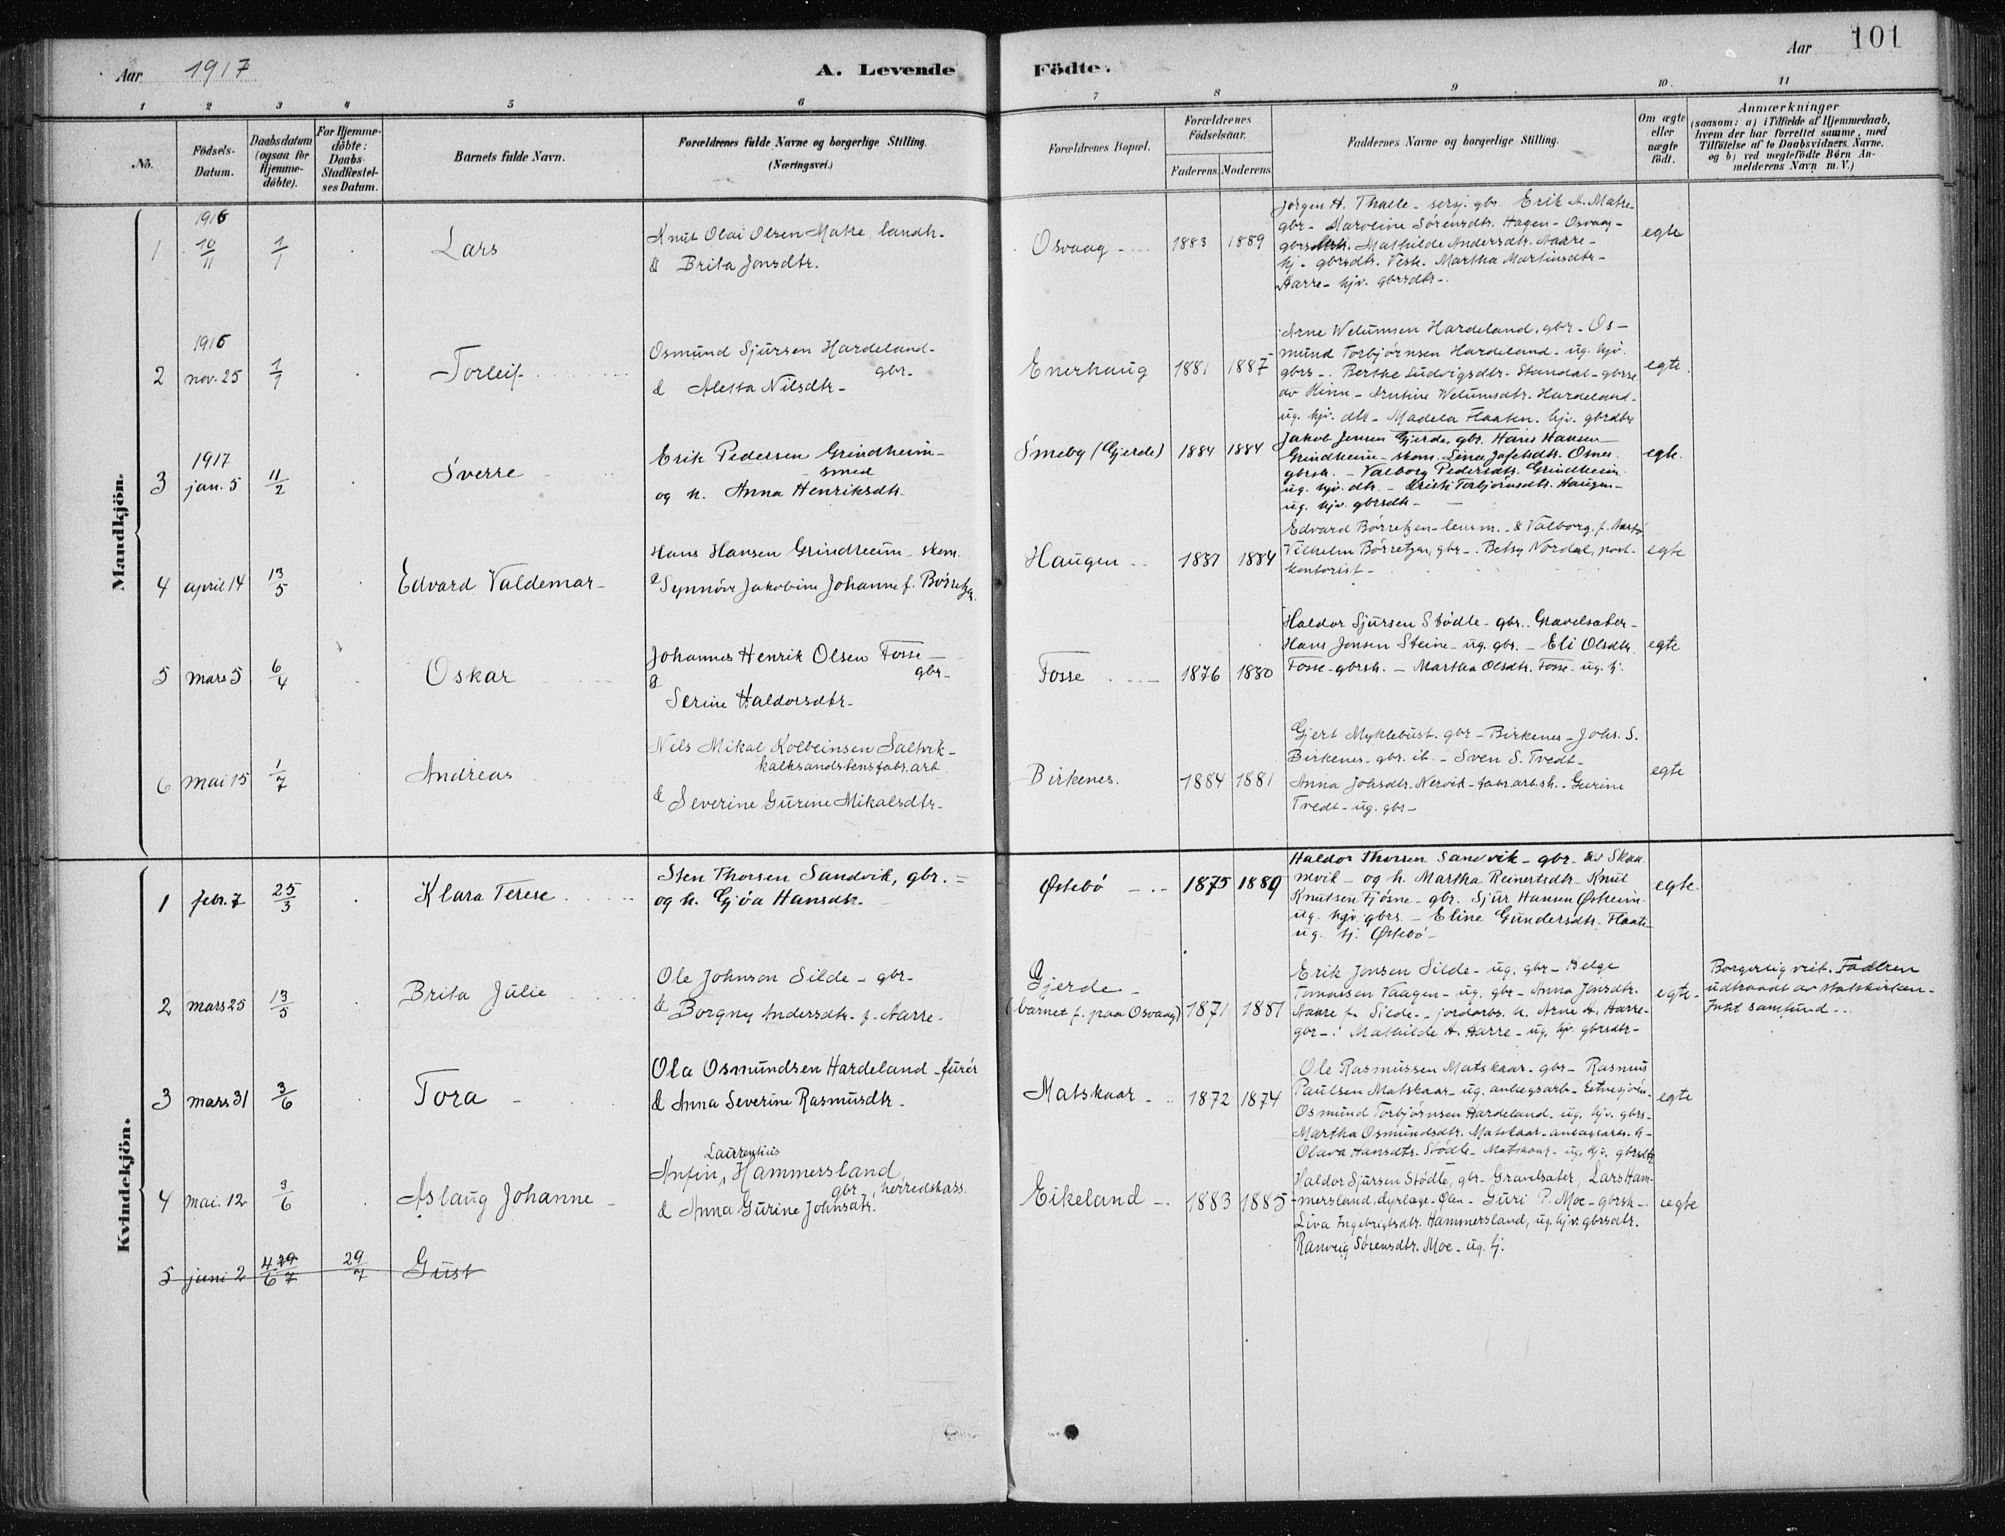 Aar 1917
A. Levende Födte.
Aar 101
1 2 3 4 5 6 7 8 9 10 11
No.
Födsels-Datum.
Daabsdatum (ogsaa for Hjemmedöbte).
For Hjemmedöbte: Daabs-Stadfæstelses Datum.
Barnets fulde Navn.
Forældrenes fulde Navne og borgerlige Stilling.
(Næringsvei.)
Forældrenes Bopæl.
Forældrenes Födselsaar.
Faderens Moderens
Faddernes Navne og borgerlige Stilling.
Om ægte eller uægte födt.
Anmærkninger
(saasom: a) i Tilfælde af Hjemmedaab, hvem der har forrettet samme, med Tilföielse af to Daabsvidners Navne, og b) ved uægtefödte Börn Anmelderens Navn m. V.)
Mandkjön.
1 1916 10/11 1/1 Lars
Knut Olai Olsen Matre, landh.
& Brita Jonsdtr.
Osvaag 1883 1889
Jørgen H. Thaele - sersj. gbr. Erik A. Matre -
gbr - Karoline Sørensdtr. Hagen - Osvaag -
Mathilde Andersdtr. Aarre -
hj. gbrsdtr. Vesk. Martha Martinsdtr -
Aarre - hjv. gbrsdtr -.
egte
2 1916 nov. 25 1/1 Torleif
Osmund Sjursen Hardeland -
gbr -
& Aletta Nilsdtr -
Enerhaug 1881 1887
Arne Welumsen Hardeland, gbr - Os-
mund Torbjørnsen Hardeland - ug. hjv.
gbrs - Berthe Ludvigsdtr. Standal - gbrse
av Kinn - Welumsdtr. Hardeland -
ug. hjv. dtr - Madela Flaaten. hjv. gbrdtr
egte.
3 1917 jan. 5 11/2 Sverre
Erik Pedersen Grindheim -
smed
og h. Anna Henriksdtr.
Smeby (Gjerde) 1884 1884
Jakob Jensen Gjerde, gbr. Hans Hansen
Grindheim - skom. Lina Osnes.
gbrsh. - Valborg Pedersdtr. Grindheim
ug. hjv. dtr. - Kristi Torbjørnsdtr. Haugen -
ug. hjv. gbrsdtr -
egte.
4 april 14 13/5 Edvard Valdemar -
Hans Hansen Grindheim - skom.
& Synnøve Jakobine Johanne f. Børretzen
Haugen 1887 1884
Edvard Børretzen - lensm. - & Valborg, f.
Vilhelm Børretzen, gbr -. Betsy Nordal, post-
kontorist -
egte
5 mars 5 6/4 Oskar
Johannes Henrik Olsen Fosse -
gbr -
& Serine Haldorsdtr -
Fosse 1876 1880
Haldor Sjursen Stødle - gbr.. Gravelsæter -
Hans Jonsen Steine - ug. gbr. - Eli Olsdtr.
Fosse - gbrsh. - Martha Olsdtr. Fosse - ug. hj.
egte
6 mai 15 1/7 Andreas
Nils Mikal Kolbeinsen Saltvik -
kalksandstensfabr.arb
& Severine Gurine Mikalsdtr -
Birkenes. 1884 1881
Gjert Myklebust. gbr - Birkenes - Johs. S.
Birkenes - gbr. ib. - Sven S. Tvedt -
Anna Johsdtr. Nervik - fabr.arb.sh. - Gurine
Tvedt - ug. gbr -
egte
Kvindekjön.
1 febr. 7 25/3 Klara Terese
Sten Thorsen Sandvik, gbr. =
og h. Gjøa Hansdtr. -
Østebö 1875 1889
Haldor Thorsen Sandvik - gbr - av Skaa-
nevik - og h. Martha Reinertsdtr - Knut
Knutsen Fjøsne - gbr. Sjur Hansen Østheim -
ug. hjv. gbrs. - Eline Gundersdtr. Flaate -
ug. hj. Østebö -
egte -
2 mars 25 13/5 Brita Julie
Ole Johnson Silde - gbr -
& Borgny Andersdtr. f. Aarre.
Gjerde -
(barnet f. paa Osvaag) 1871 1881
Erik Jonsen Silde - ug. gbr - Helge
Tomassen Vaagen - ug. gbr - Anna Jonsdtr.
Aarre f. Silde - jordarbs. h. Arne A. Aarre -
gbr - ! Mathilde A. Aarre - ug. hjv. gbrsdtr -
egte -
Borgerlig viet. Fadren
udtraadt av statskirken -
Intet samfund...
3 mars 31 3/6 Tora -
Ola Osmundsen Hardeland - furér
& Anna Severine Rasmusdtr -
Matskaar - 1872 1874
Ole Rasmussen Matskaar - gbr - Rasmus
Paulsen Matskaar - ug. anlegsarb - Etnesjøen -
Osmund Torbjørnsen Hardeland - ug. hjv. gbrs -
Martha Osmundsdtr. Matskaar - anlegsarbs. h -
Olava Hansdtr. Stødle - Matskaar - ug. hjv. gbrsdtr
egte
4 mai. 12 3/6 Aslaug Johanne -
Laurentius
Anfin, Hammersland,
gbr, herredskass.
& Anna Gurine Johnsdtr.
Eikeland - 1883 1885
Haldor Sjursen Stødle, gbr - Gravelsæter, Lars Ham-
mersland, dyrlæge - Ølen - Guri P. Moe - gbrsh -
Liva Ingebrigtsdtr. Hammersland, ug. hjv. gbrsdtr.
Ranveig Sørensdtr. Moe - ug. hj.
egte
5 juni 2 4/6 29/7 29/7 Gust